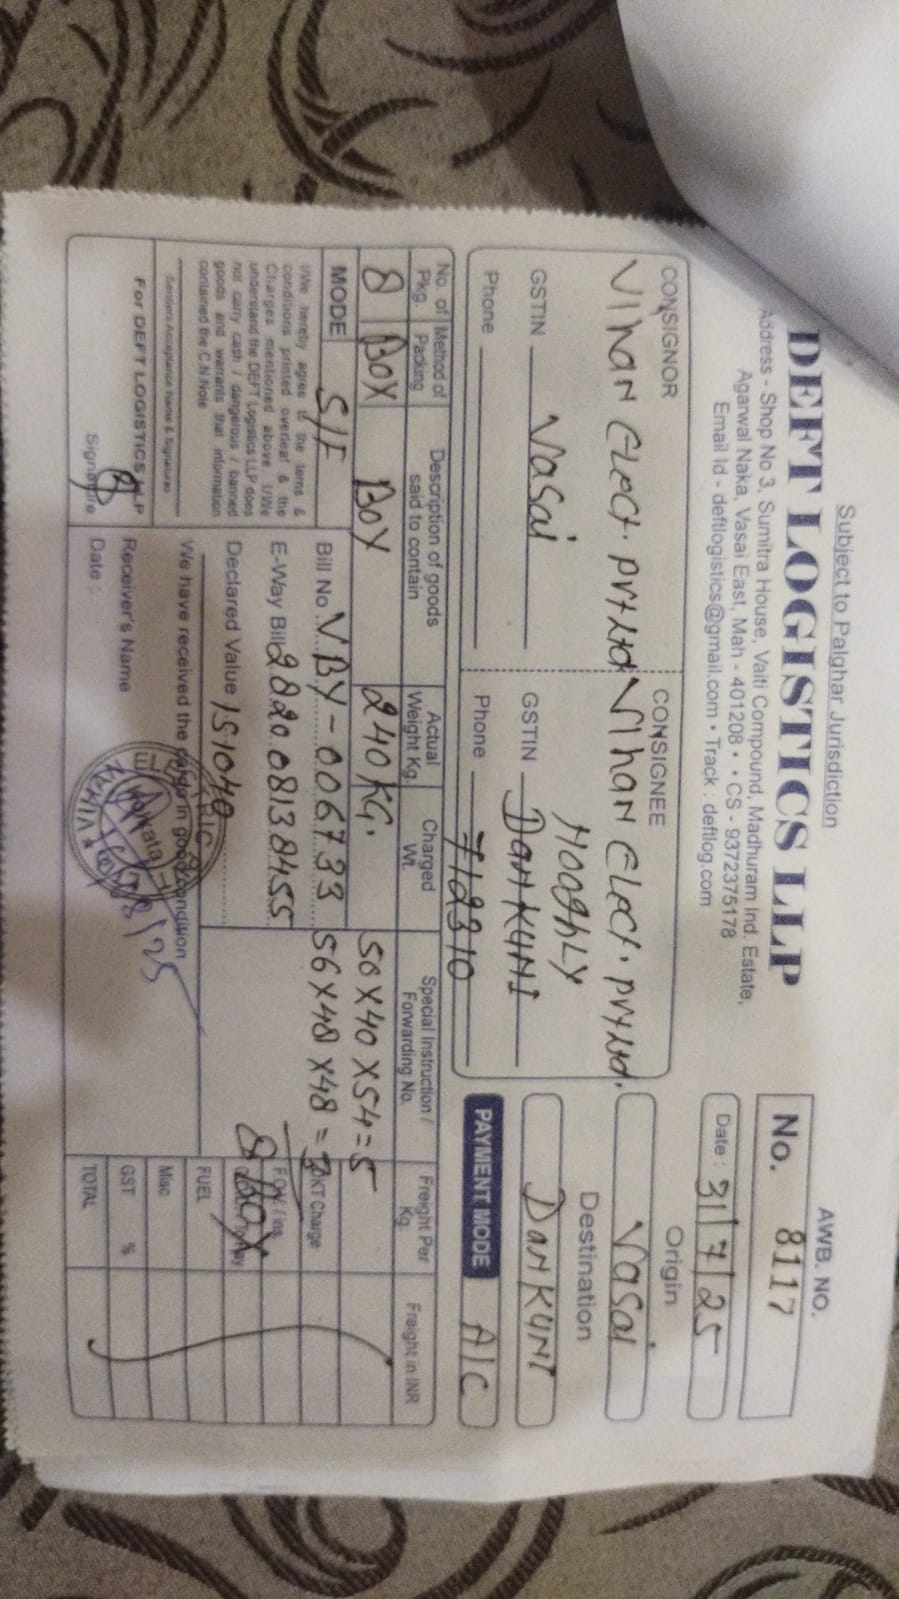 Subject to Palghar Jurisdiction
DEFT LOGISTICS LLP
Address - Shop No 3, Sumitra House, Vaiti Compound, Madhuram Ind. Estate,
Agarwal Naka, Vasai East, Mah - 401208 • • CS - 9372375178
Email Id - deftlogistics@gmail.com • Track : deftlog.com
AWB. NO.
No. 8117
Date : 31/7/25
CONSIGNOR
Vihan Elect. Pvt Ltd
GSTIN Vasai
Phone
CONSIGNEE
Vihan Elect. Pvt Ltd.
HooghLY
GSTIN DanKuni
Phone 712310
Origin
Vasai
Destination
DanKuni
PAYMENT MODE A/C
No. of Pkg. Method of Packing Description of goods said to contain Actual Weight Kg. Charged Wt. Special Instruction / Forwarding No. Freight Per Kg. Freight in INR
8 BOX BOX 240 KG. 50 X 40 X 54 = 5
56 X 48 X 48 = 3
8 Box
MODE S/F
Bill No. VBY-006733
E-Way Bill 282008138455
Declared Value 151040
I/We hereby agree to the terms &
conditions printed overleaf & the
Charges mentioned above. I/We
understand the DEFT Logistics LLP does
not carry cash / dangerous / banned
goods and warrants that information
contained the C.N Note
Senders Acceptance Name & Signatures
For DEFT LOGISTICS LLP
Signature
We have received the cargo in good condition
Receiver's Name
Date :
DKT Charge
FOV / Ins.
FUEL
Misc
GST %
TOTAL